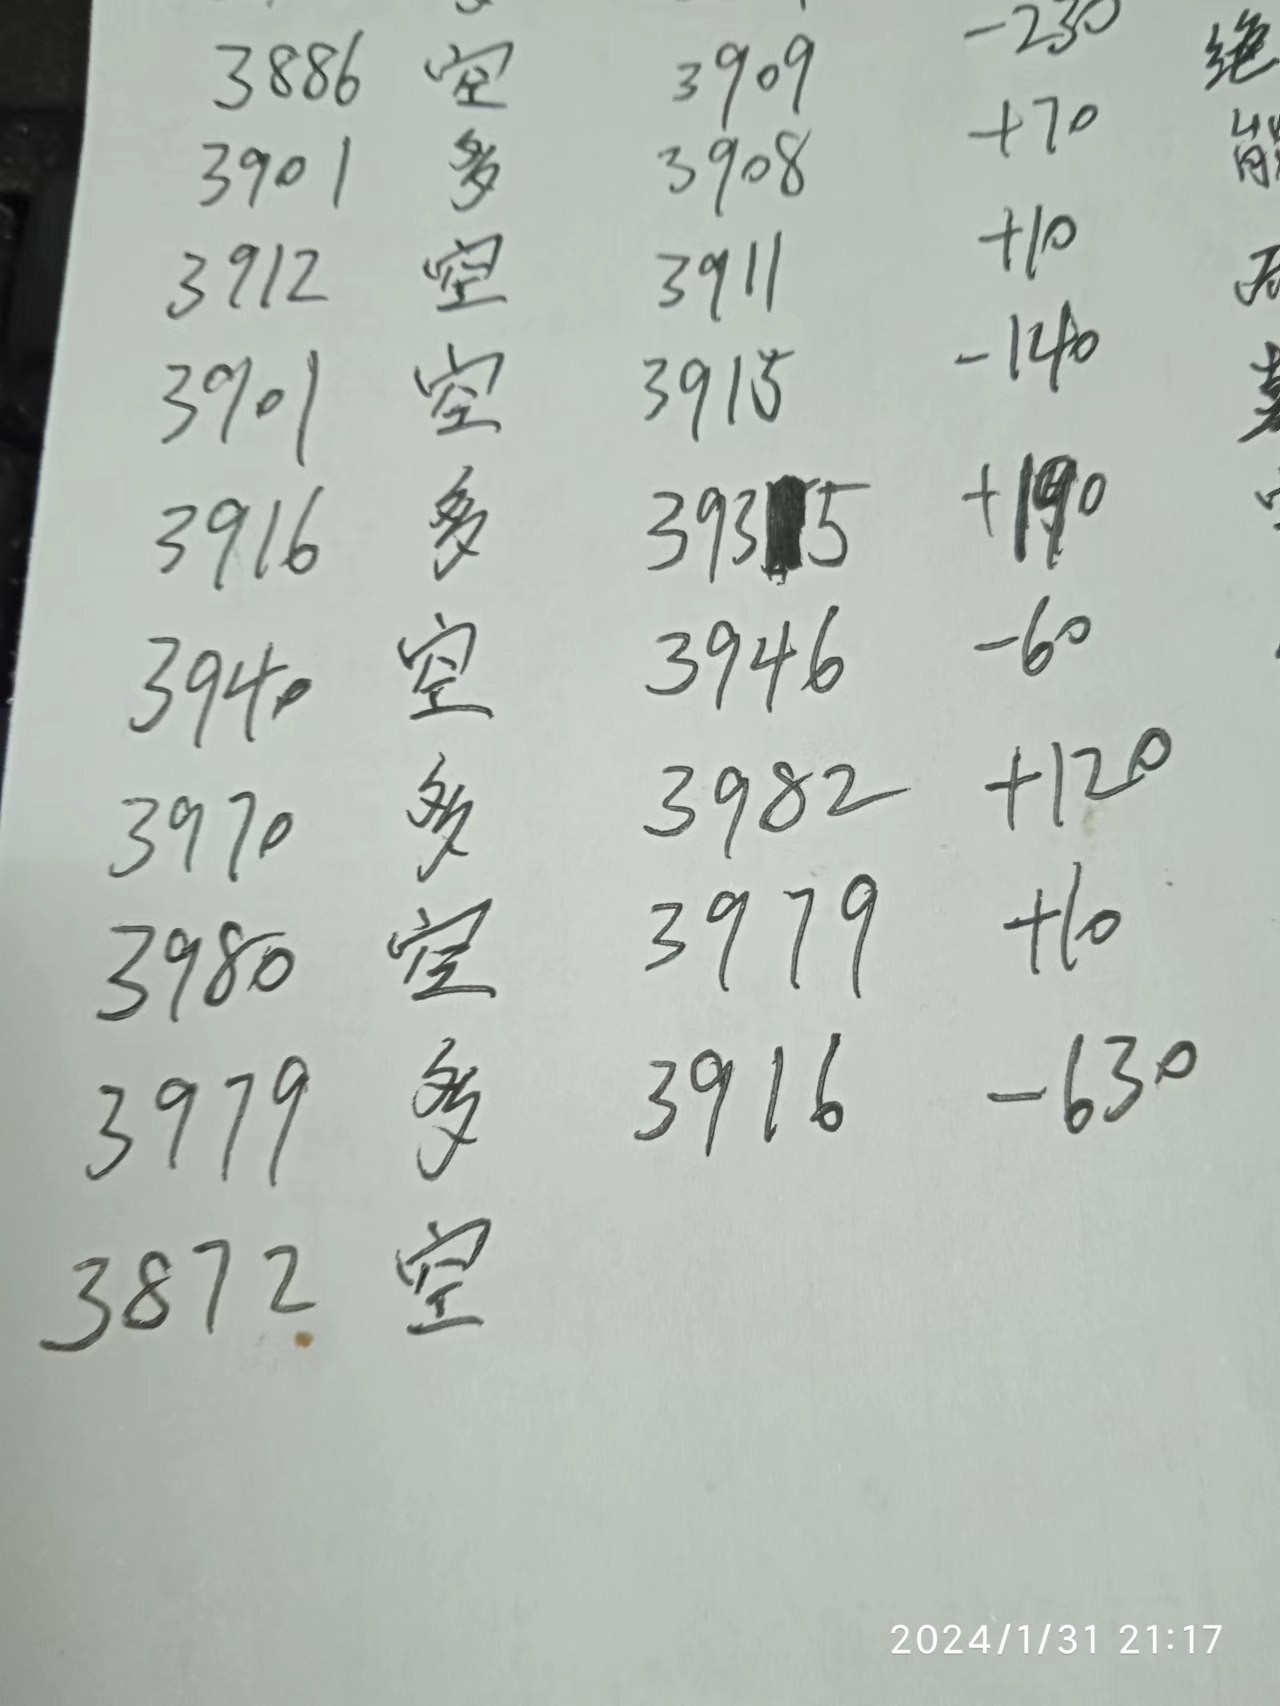 3886 空 3909 -230 绝
3901 多 3908 +70 能
3912 空 3911 +10
3901 空 3915 -140
3916 多 3935 +190
3940 空 3946 -60
3970 多 3982 +120
3980 空 3979 +10
3979 多 3916 -630
3872 空
2024/1/31 21:17